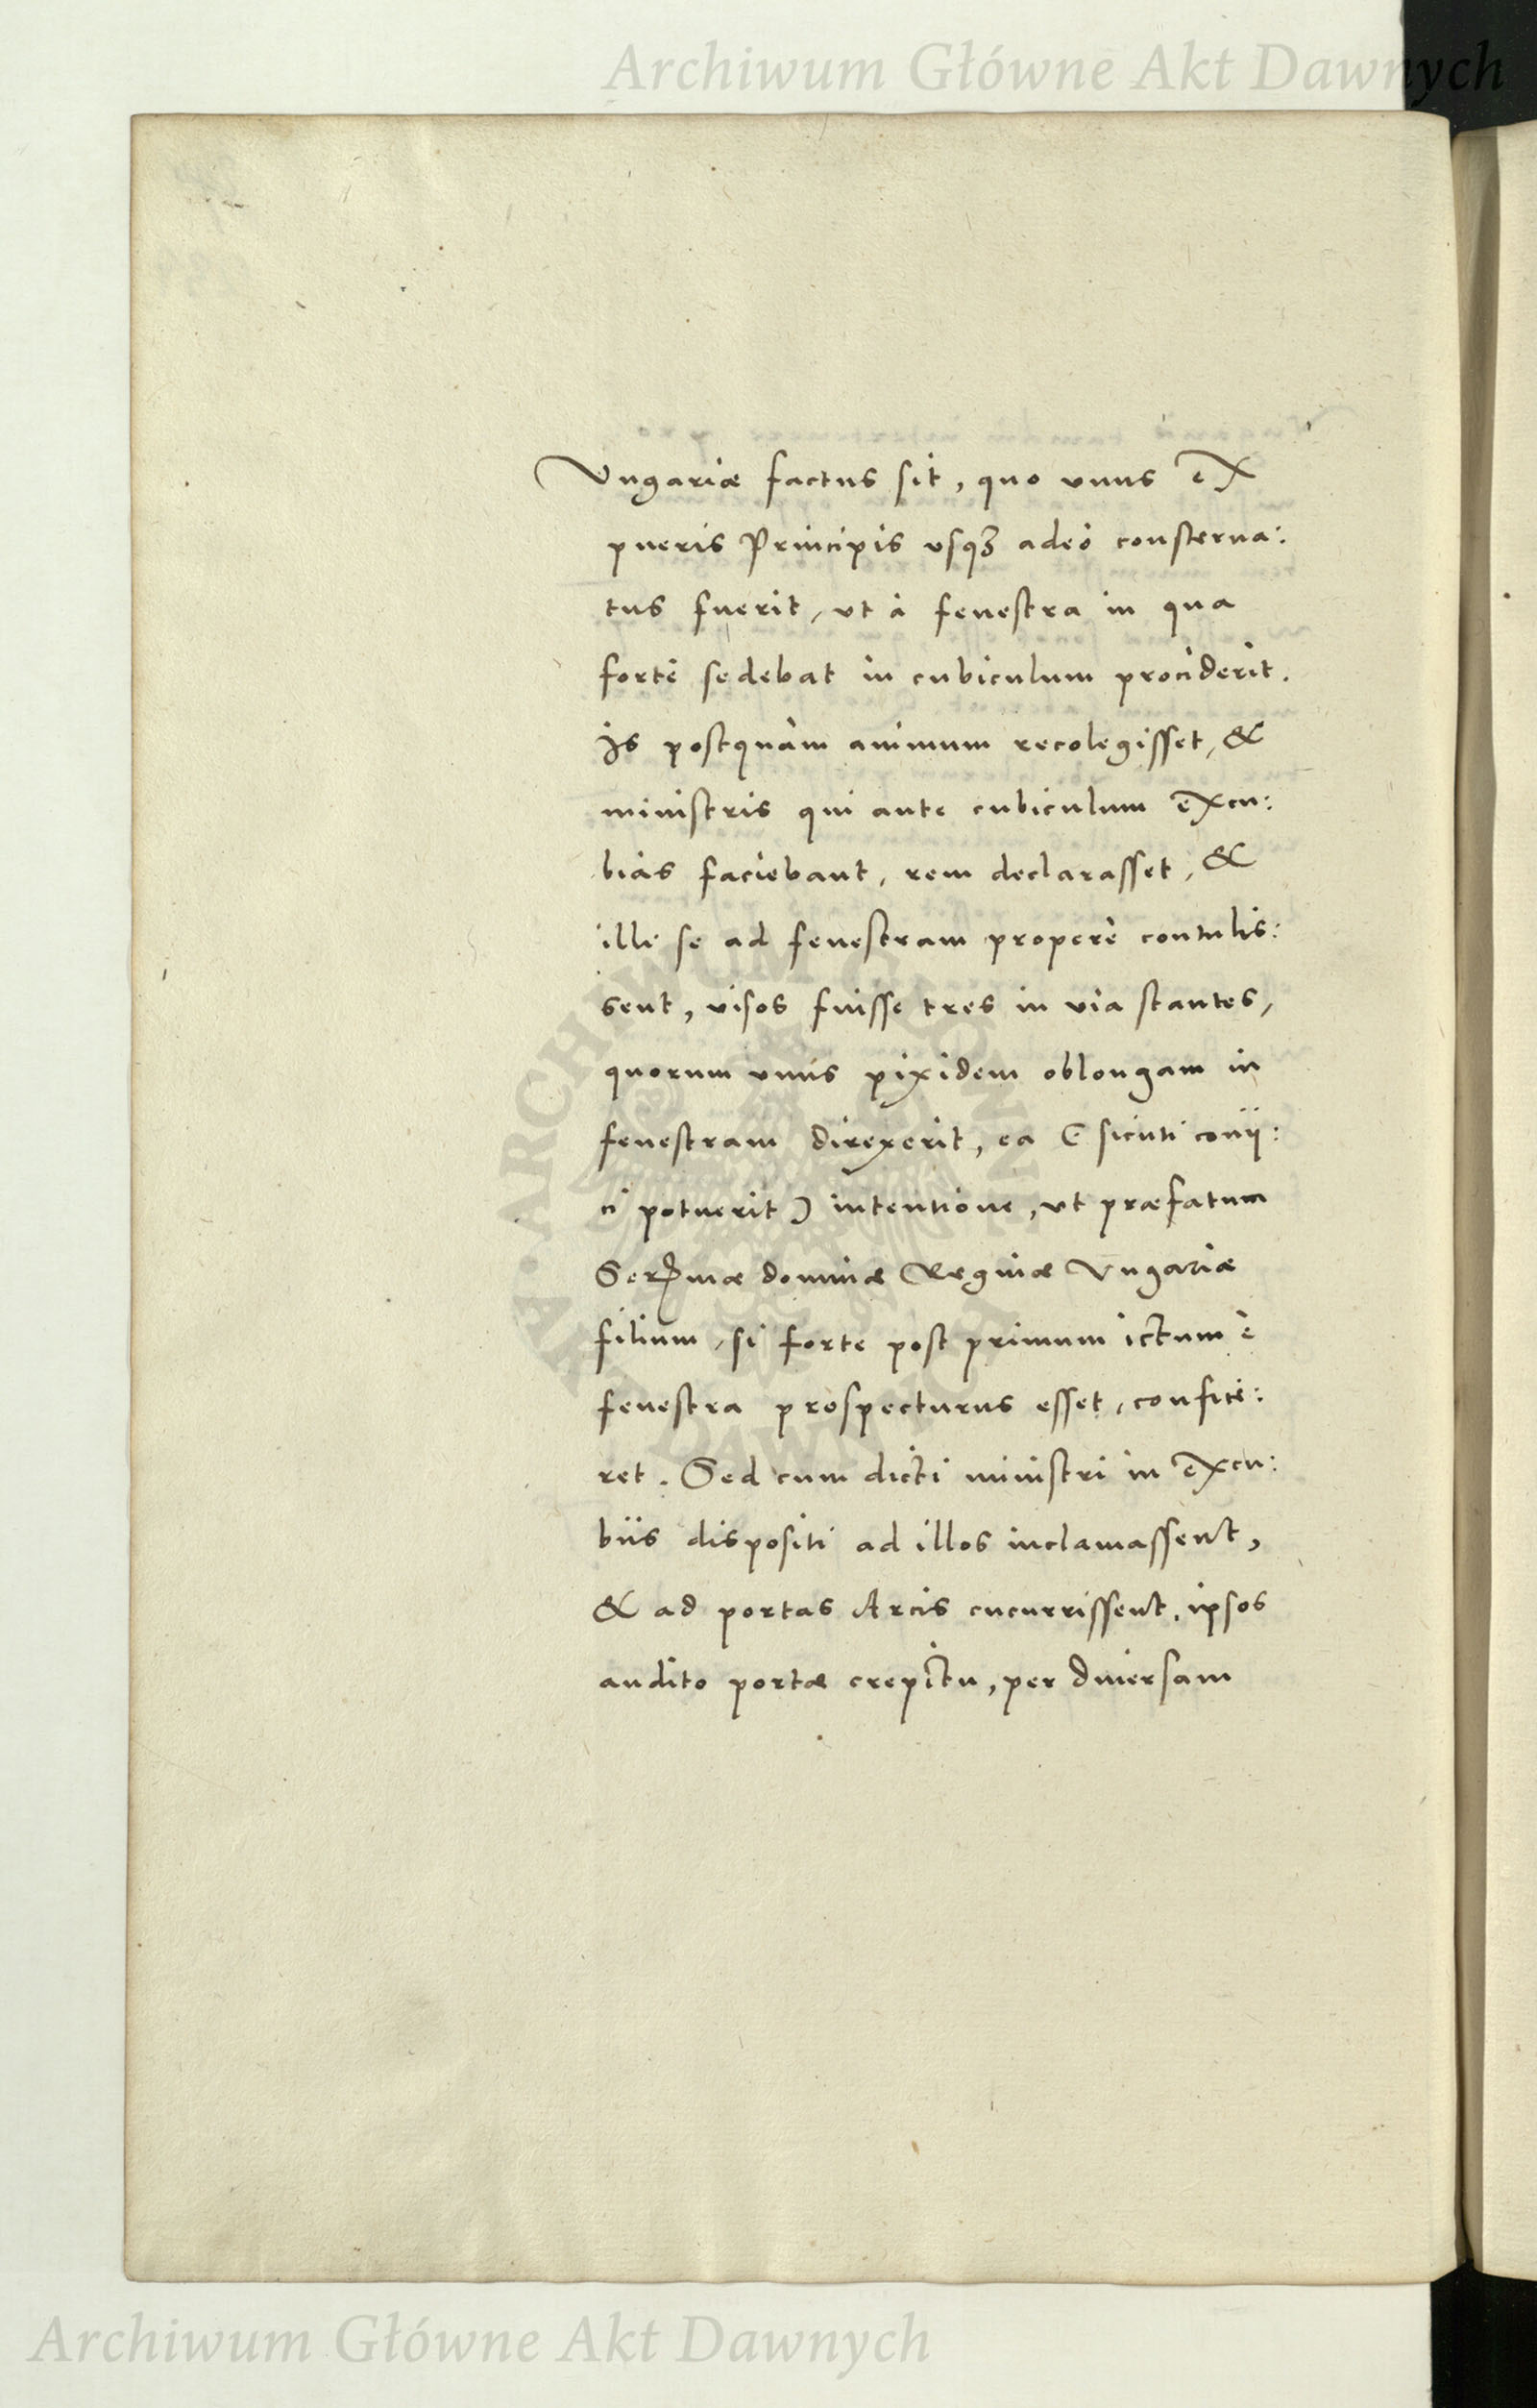 Archiwum Główne Akt Dawnych
Vngariæ factus sit, quo vnus ex
pueris Principis vsqꝫ adeò consterna:
tus fuerit, vt à fenestra in qua
fortè sedebat in cubiculum prociderit.
Is postquàm animum recolegisset, &
ministris qui ante cubiculum excu:
bias faciebant, rem declarasset, &
illi se ad fenestram properè contulis:
sent, visos fuisse tres in via stantes,
quorum vnus pixidem oblongam in
fenestram direxerit, ea ( sicuti conij:
ci potuerit ) intentione, vt præfatum
Serᵐᵃᵉ dominæ Reginæ Vngariæ
filium, si forte post primum ictum è
fenestra prospecturus esset, confice:
ret. Sed cum dicti ministri in excu:
biis dispositi ad illos inclamassent,
& ad portas Arcis cucurrissent, ipsos
audito portæ crepitu, per diuersam
ARCHIWUM GŁÓWNE AKT DAWNYCH
Archiwum Główne Akt Dawnych